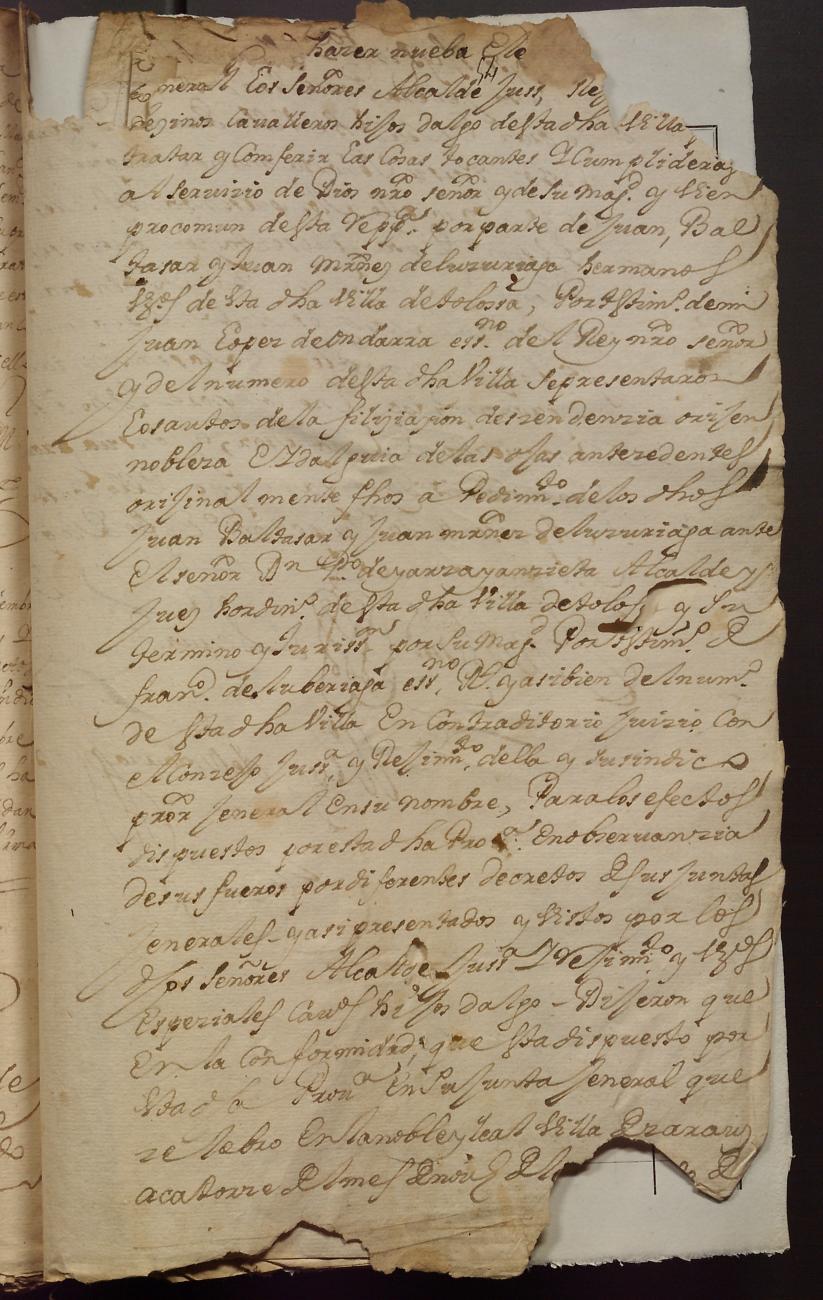 hazer nueba Ele
54
neral Los señores Alcalde Juss, Re
Vezinos Cavalleros hijos dalgo desta dha Villa
tratar y Comferir Las Cosas tocantes Y Cumplideras
al servizio de Dios nro señor y de su Magd. y vien
procomun desta Repp.ca por parte de Juan, Bal
tasar y Juan Mrñez de luzuriaga hermanos
Vz.os de Sta dha Villa de tolossa, Por testim.o de mi
Juan Lopez de Ondarra ess.no del Rey nro señor
y del numero desta dha Villa se presentaron
Los autos de la filiziazion deszendenzia orijen
nobleza E Ydalguia de las ojas antezedentes
orijinalmente fhos a Pedimi.to de los dhos
Juan Baltasar y Juan mrñez de luzuriaga ante
El señor Dn de yarza yanzieta Alcalde y
Juez hordin.o de Sta dha Villa de tolosa y su
termino y Juriss.on por su Magd. Por testim.o de
Fran.co de luberiaga ess.no Rl. y asibien del num.o
de Sta dha Villa En Contraditorio Juizio Con
el Conzejo Juss.a y Rejimi.to della y su sindico
pror Jeneral en su nombre, Para los efectos
dispuestos por esta dha Pro.a En obseruanzia
de sus fueros por diferentes decretos de sus Juntas
Jenerales - y asi presentados y vistos por los
dhos señores Alcalde Juss.a Y Rejimi.to y Vz.os
Espeziales Cau.os hijos dalgo - Dijeron que
En la Conformidad, que Sta dispuesto por
Sta dha Prou.a En su Junta Jeneral que
zelebro En la noble y leal Villa de zarauz
a catorze del mes de de